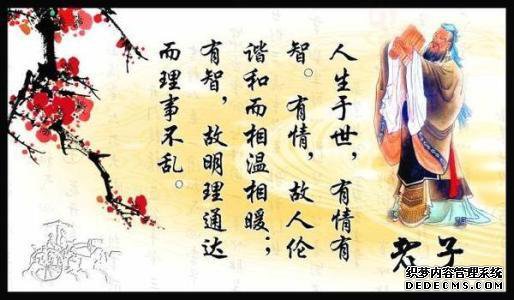 人生于世，有情有
智。有情，故人伦
谐和而相温相暖；
有智，故明理通达
而理事不乱。
老子
织梦内容管理系统
DEDECMS.COM